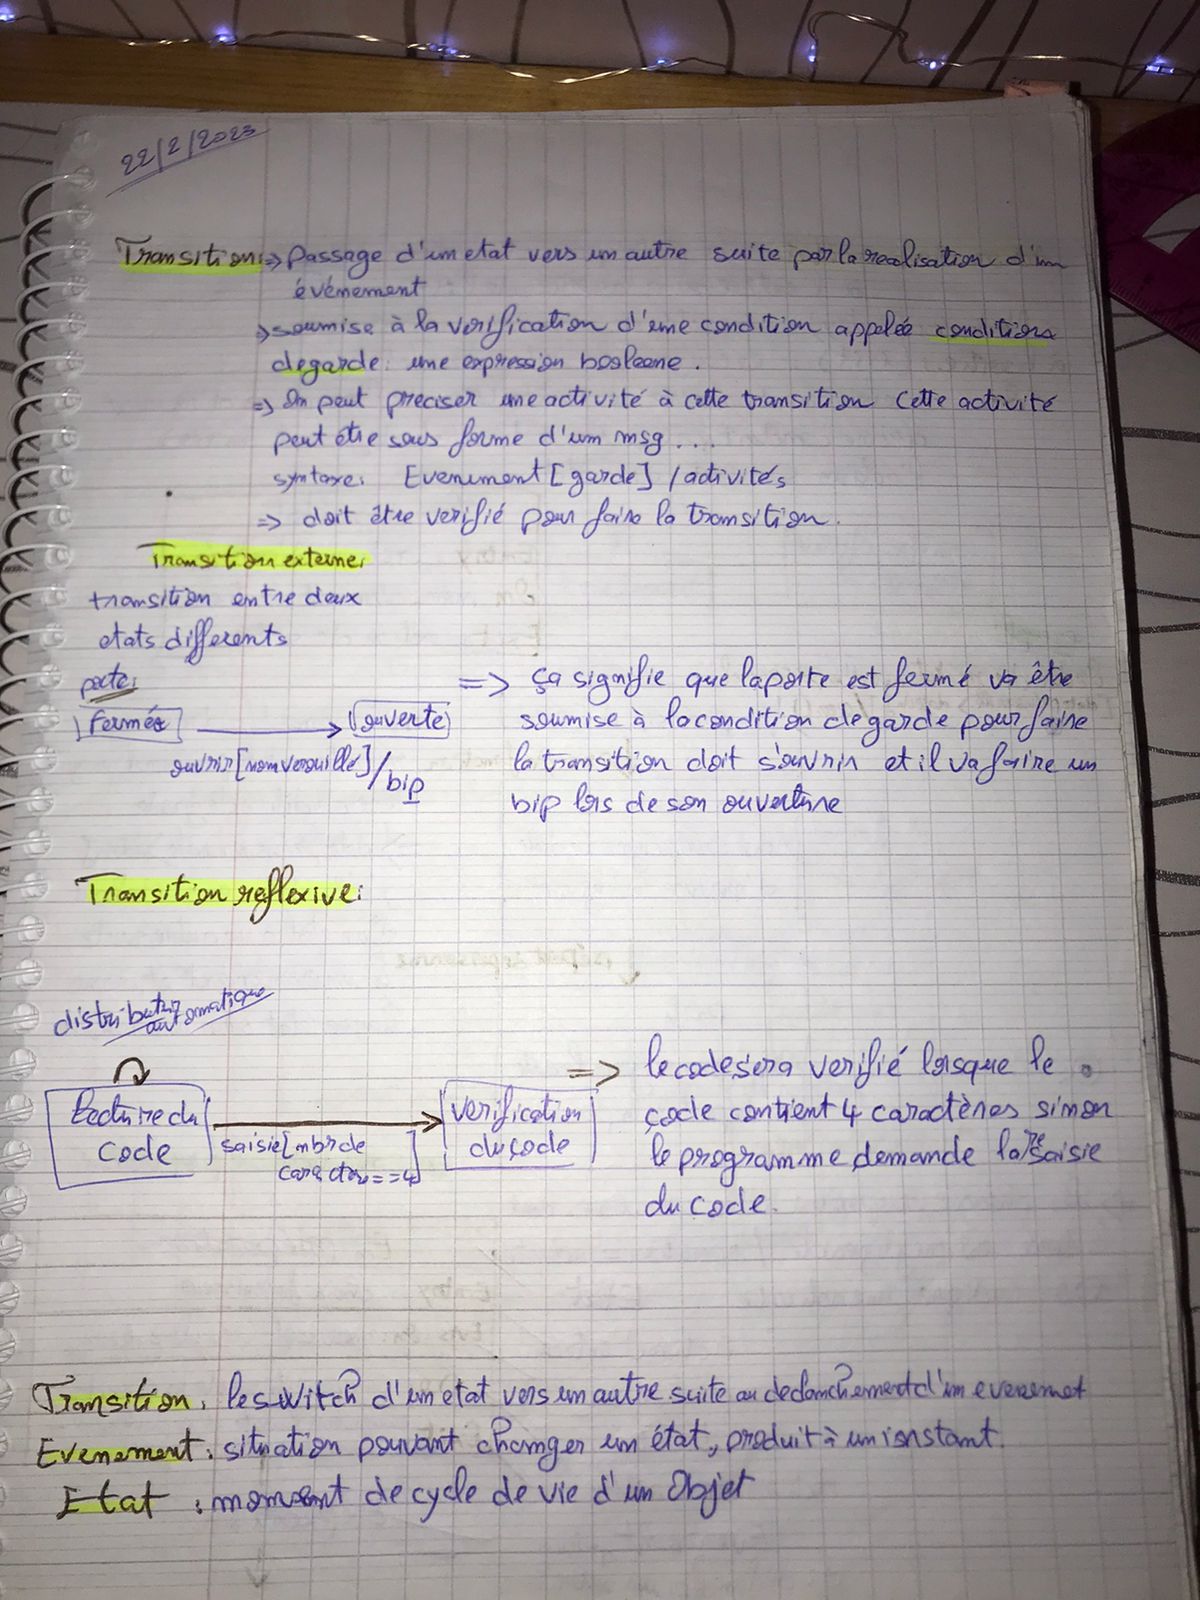 22/2/2023
Transition: => Passage d'un etat vers un autre suite par la realisation d'un
événement
=> soumise à la verification d'une condition appelée conditions
de garde: une expression booleene.
=> On peut preciser une activité à cette transition cette activité
peut être sous forme d'un msg...
syntaxe: Evenement [garde] / activités
=> doit être verifié pour faire la transition.
Transition externe:
transition entre deux
etats differents
porte:
Fermée
ouverte
ouvrir [non verouillé] / bip
=> ça signifie que la porte est fermé va être
soumise à la condition de garde pour faire
la transition doit s'ouvrir et il va faire un
bip lors de son ouverture
Transition reflexive:
distributeur
automatique
lecture du
code
saisie [nbr de
caractere == 4]
verification
du code
=> le code sera verifié lorsque le
code contient 4 caractères sinon
le programme demande la re saisie
du code.
Transition: le switch d'un etat vers un autre suite au declanchement d'un evenemet
Evenement: situation pouvant changer un état, produit à un instant.
Etat: moment de cycle de vie d'un Objet